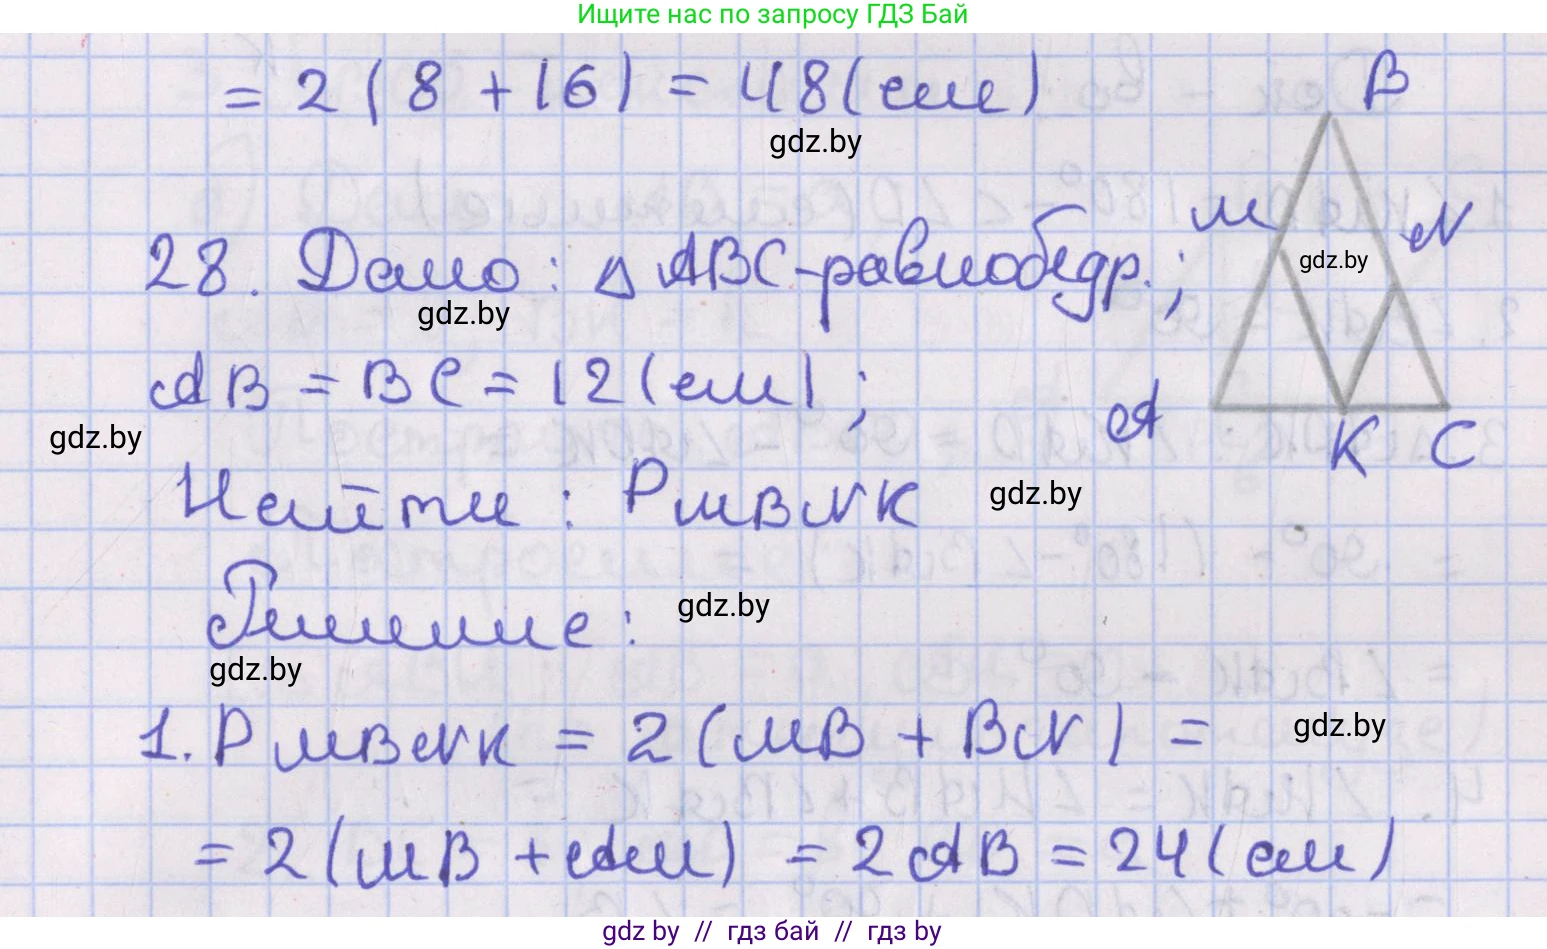 Ищите нас по запросу ГДЗ Бай
= 2(8 + 16) = 48(см)
gdz.by
B
M
N
gdz.by
28. Дано: △ ABC-равнобедр.;
gdz.by
AB = BC = 12(см);
A
K C
gdz.by
Найти: PMBNK
gdz.by
Решение:
gdz.by
gdz.by
1. PMBNK = 2(MB + BN) =
gdz.by
= 2(MB + AM) = 2AB = 24(см)
gdz by // гдз бай // гдз by